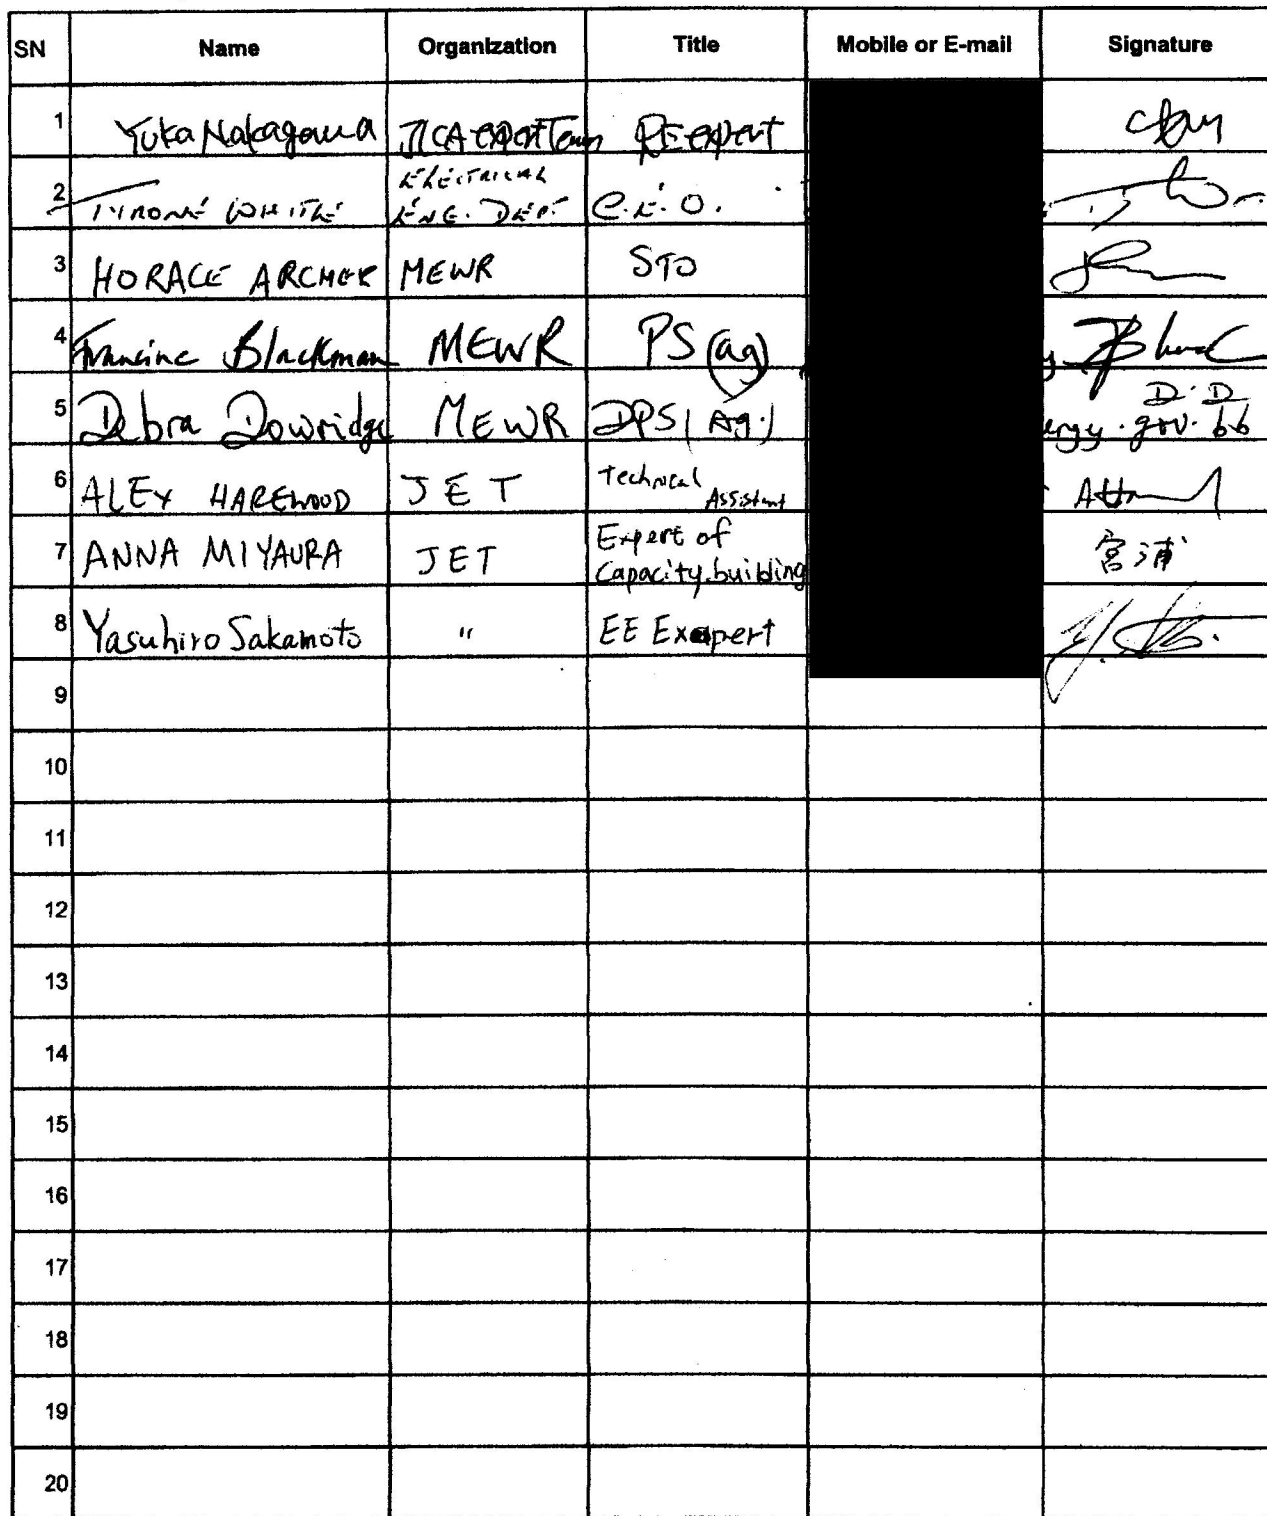 SN Name Organization Title Mobile or E-mail Signature
1 Yuka Nakagawa JICA expert Team RE expert
2 TYRONE WHITE ELECTRICAL ENG. DEPT C.E.O.
3 HORACE ARCHER MEWR STO
4 Francine Blackman MEWR PS (ag)
5 Debra Dowridge MEWR DPS (Ag.) D.D
ergy.gov.bb
6 ALEX HAREWOOD JET Technical Assistant
7 ANNA MIYAURA JET Expert of Capacity building 宮浦
8 Yasuhiro Sakamoto " EE Expert
9
10
11
12
13
14
15
16
17
18
19
20